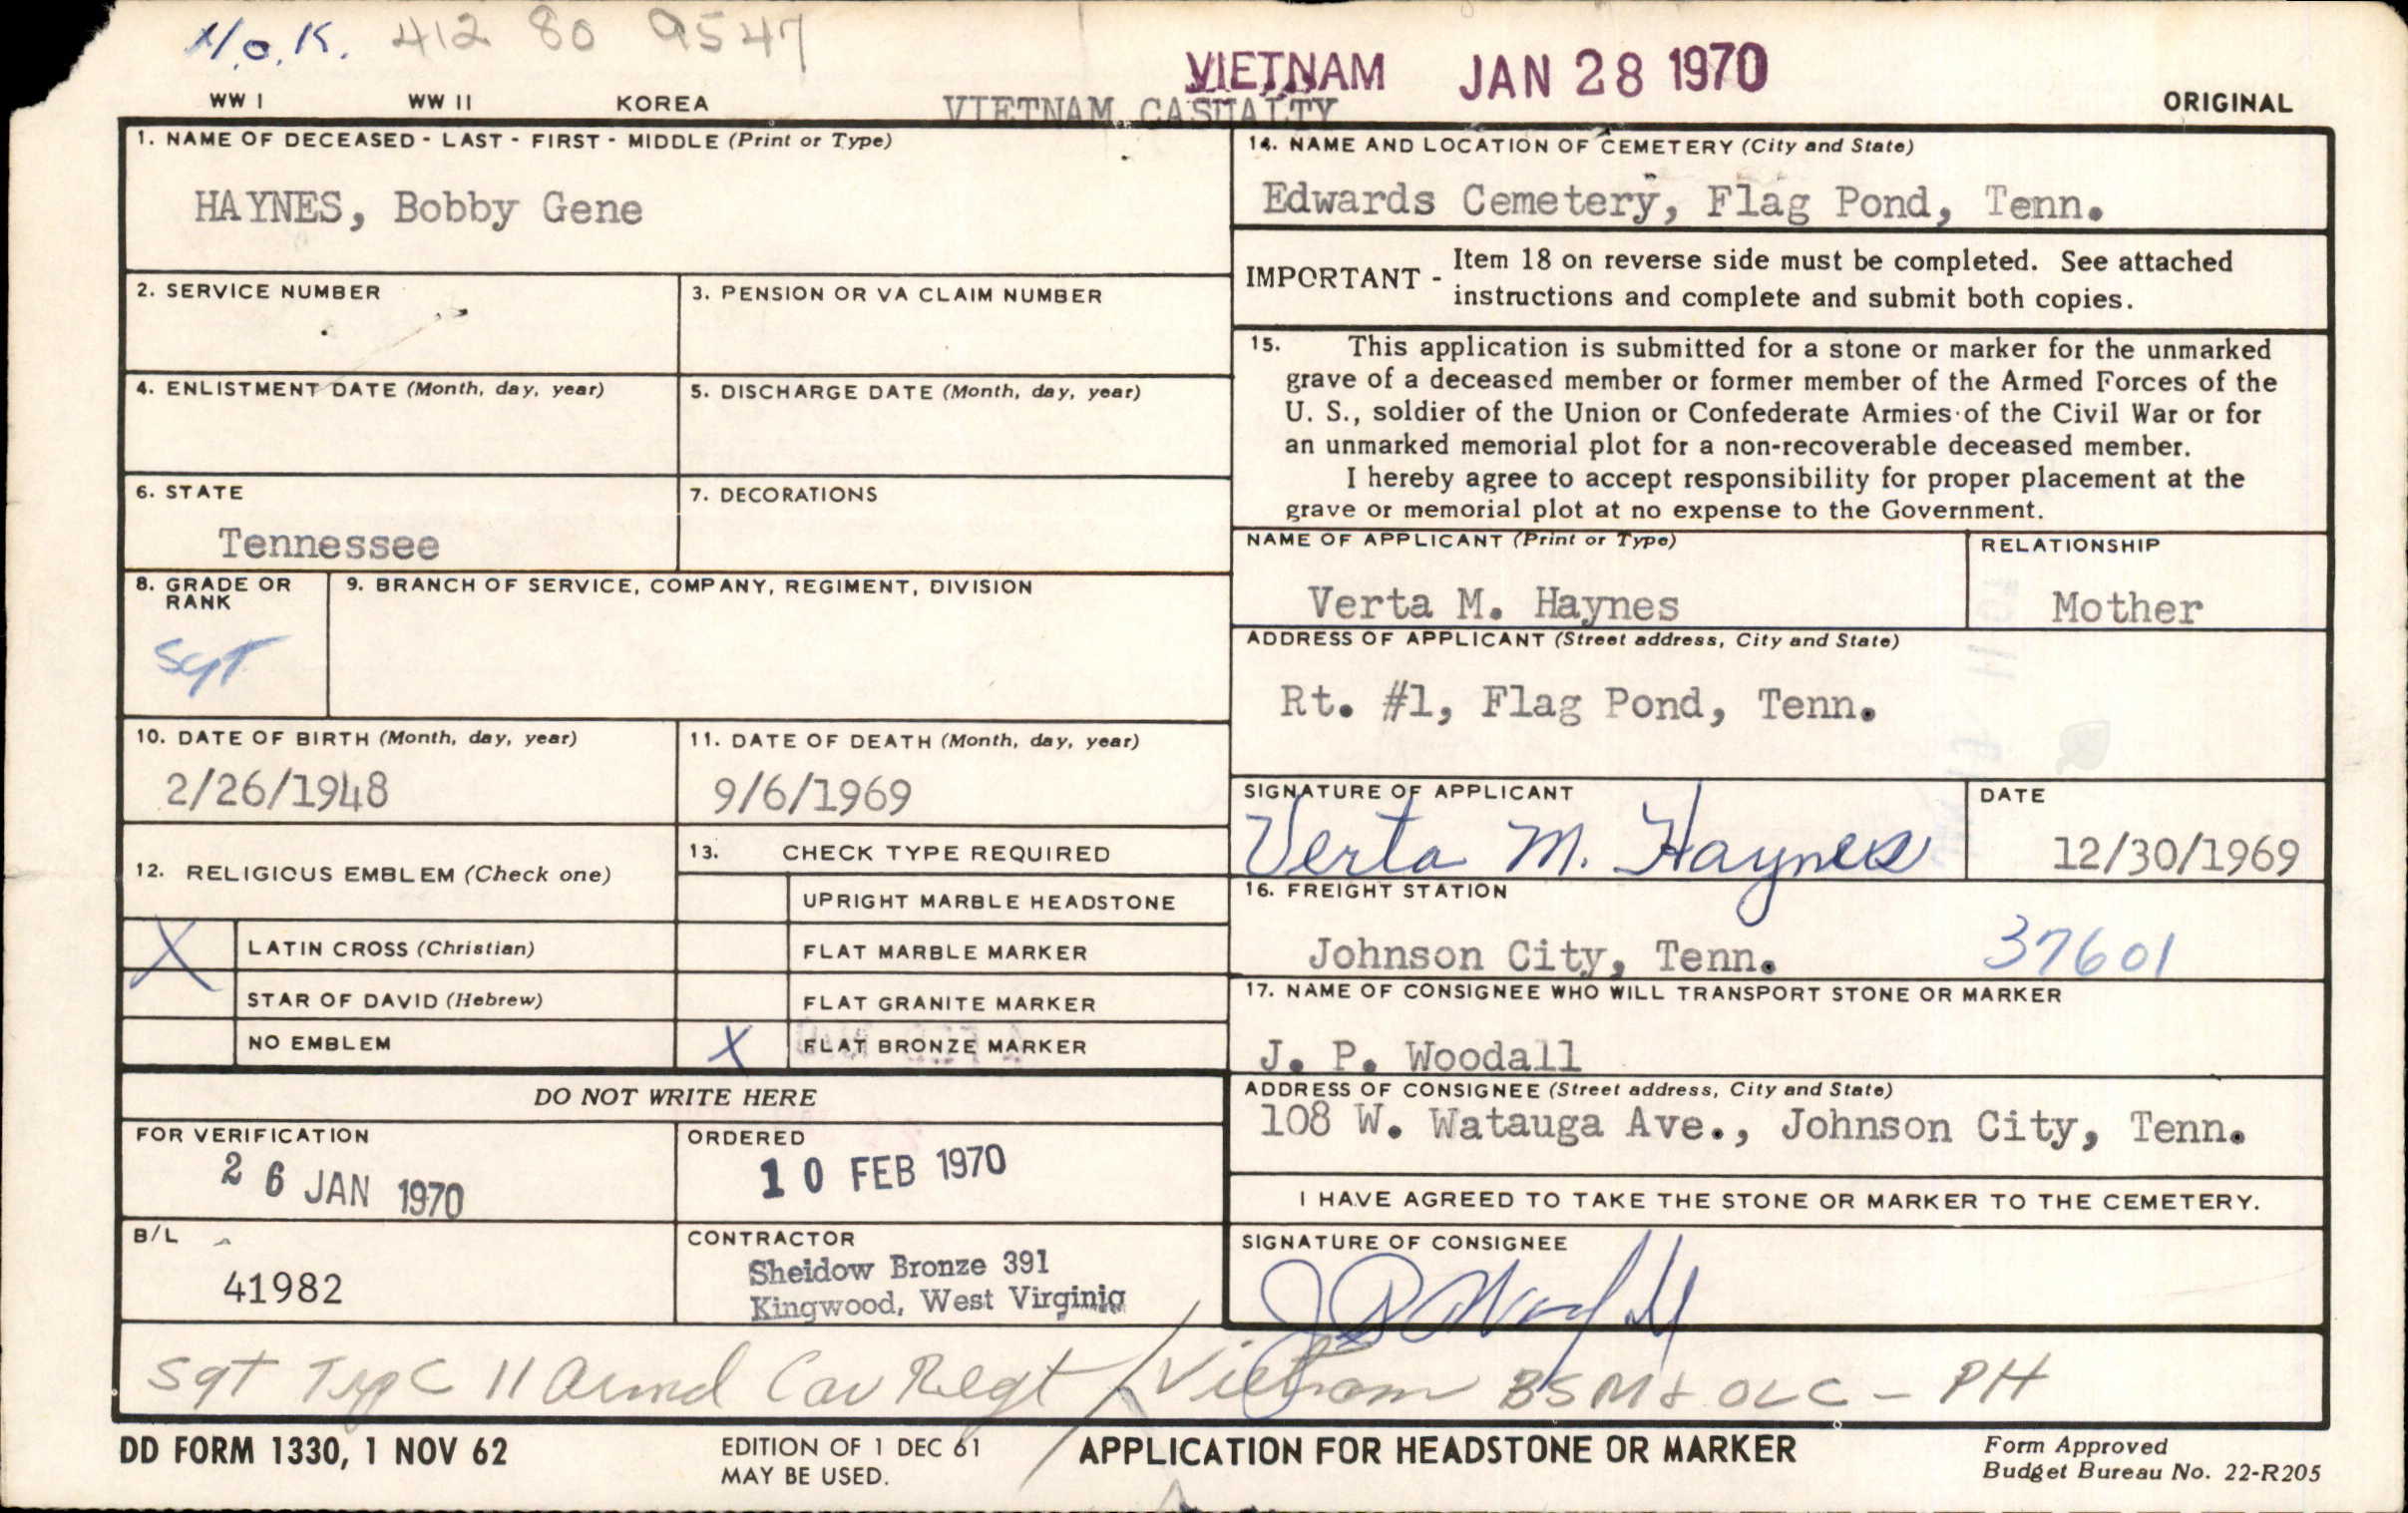 N.O.K. 412 80 9547
VIETNAM JAN 28 1970
WW I WW II KOREA
VIETNAM CASUALTY
ORIGINAL
1. NAME OF DECEASED - LAST - FIRST - MIDDLE (Print or Type)
HAYNES, Bobby Gene
2. SERVICE NUMBER
3. PENSION OR VA CLAIM NUMBER
4. ENLISTMENT DATE (Month, day, year)
5. DISCHARGE DATE (Month, day, year)
6. STATE
Tennessee
7. DECORATIONS
8. GRADE OR RANK
Sgt
9. BRANCH OF SERVICE, COMPANY, REGIMENT, DIVISION
10. DATE OF BIRTH (Month, day, year)
2/26/1948
11. DATE OF DEATH (Month, day, year)
9/6/1969
12. RELIGIOUS EMBLEM (Check one)
X LATIN CROSS (Christian)
STAR OF DAVID (Hebrew)
NO EMBLEM
13. CHECK TYPE REQUIRED
UPRIGHT MARBLE HEADSTONE
FLAT MARBLE MARKER
FLAT GRANITE MARKER
X FLAT BRONZE MARKER
DO NOT WRITE HERE
FOR VERIFICATION
26 JAN 1970
ORDERED
10 FEB 1970
B/L
41982
CONTRACTOR
Sheidow Bronze 391
Kingwood, West Virginia
14. NAME AND LOCATION OF CEMETERY (City and State)
Edwards Cemetery, Flag Pond, Tenn.
IMPORTANT - Item 18 on reverse side must be completed. See attached
instructions and complete and submit both copies.
15. This application is submitted for a stone or marker for the unmarked
grave of a deceased member or former member of the Armed Forces of the
U. S., soldier of the Union or Confederate Armies of the Civil War or for
an unmarked memorial plot for a non-recoverable deceased member.
I hereby agree to accept responsibility for proper placement at the
grave or memorial plot at no expense to the Government.
NAME OF APPLICANT (Print or Type)
Verta M. Haynes
RELATIONSHIP
Mother
ADDRESS OF APPLICANT (Street address, City and State)
Rt. #1, Flag Pond, Tenn.
SIGNATURE OF APPLICANT
Verta M. Haynes
DATE
12/30/1969
16. FREIGHT STATION
Johnson City, Tenn. 37601
17. NAME OF CONSIGNEE WHO WILL TRANSPORT STONE OR MARKER
J. P. Woodall
ADDRESS OF CONSIGNEE (Street address, City and State)
108 W. Watauga Ave., Johnson City, Tenn.
I HAVE AGREED TO TAKE THE STONE OR MARKER TO THE CEMETERY.
SIGNATURE OF CONSIGNEE
J P Woodall
Sgt Trp C 11 Armd Cav Regt / Vietnam BSM & OLC - PH
DD FORM 1330, 1 NOV 62
EDITION OF 1 DEC 61
MAY BE USED.
APPLICATION FOR HEADSTONE OR MARKER
Form Approved
Budget Bureau No. 22-R205